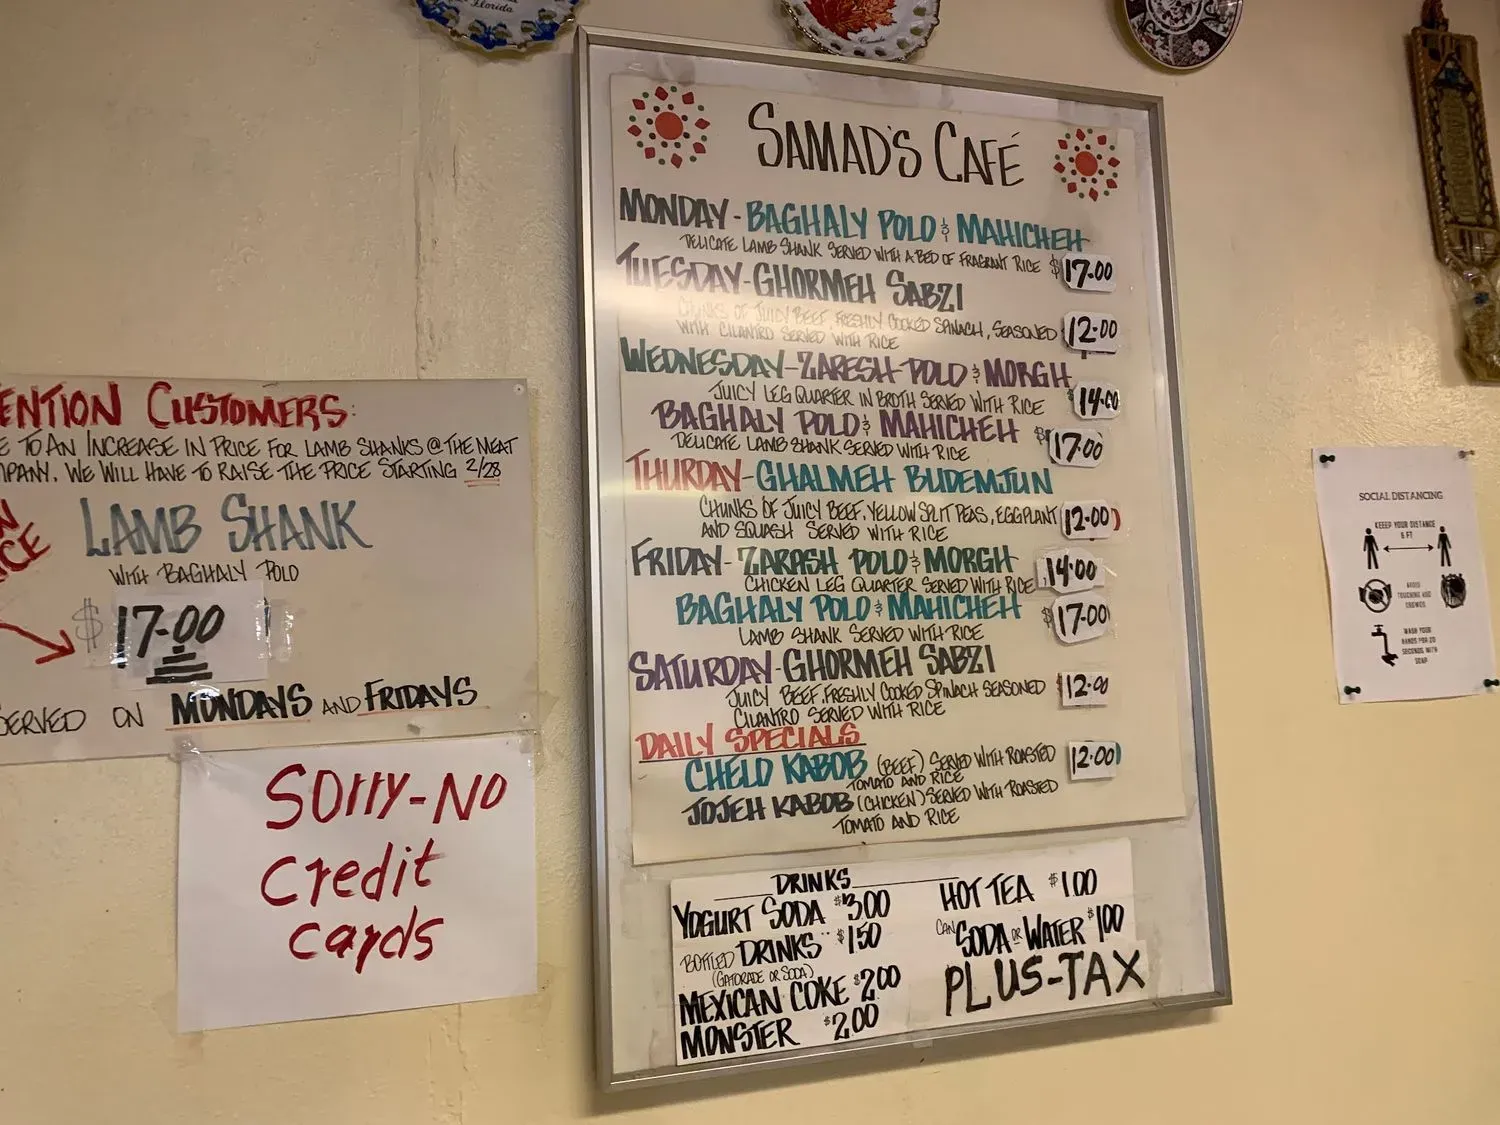 Florida
Canada
SAMAD'S CAFÉ
MONDAY - BAGHALY POLO & MAHICHEH
DELICATE LAMB SHANK SERVED WITH A BED OF FRAGRANT RICE $17.00
TUESDAY - GHORMEH SABZI
CHUNKS OF JUICY BEEF, FRESHLY COOKED SPINACH, SEASONED
WITH CILANTRO SERVED WITH RICE
12.00
WEDNESDAY - ZARESH POLO & MORGH
JUICY LEG QUARTER IN BROTH SERVED WITH RICE 14.00
BAGHALY POLO & MAHICHEH
DELICATE LAMB SHANK SERVED WITH RICE $17.00
THURDAY - GHALMEH BUDEMJUN
CHUNKS OF JUICY BEEF, YELLOW SPLIT PEAS, EGGPLANT
AND SQUASH SERVED WITH RICE
12.00
FRIDAY - ZARASH POLO & MORGH
CHICKEN LEG QUARTER SERVED WITH RICE 14.00
BAGHALY POLO & MAHICHEH
LAMB SHANK SERVED WITH RICE $17.00
SATURDAY - GHORMEH SABZI
JUICY BEEF, FRESHLY COOKED SPINACH SEASONED
CILANTRO SERVED WITH RICE
12.00
DAILY SPECIALS
CHELO KABOB (BEEF) SERVED WITH ROASTED
TOMATO AND RICE
12.00
JOJEH KABOB (CHICKEN) SERVED WITH ROASTED
TOMATO AND RICE
DRINKS
YOGURT SODA $3.00
BOTTLED DRINKS $1.50
(GATORADE OR SODA)
MEXICAN COKE $2.00
MONSTER $2.00
HOT TEA $1.00
CAN SODA OR WATER $1.00
PLUS-TAX
ENTION CUSTOMERS:
E TO AN INCREASE IN PRICE FOR LAMB SHANKS @ THE MEAT
MPANY. WE WILL HAVE TO RAISE THE PRICE STARTING 2/28
LAMB SHANK
WITH BAGHALY POLO
$17.00
SERVED ON MONDAYS AND FRIDAYS
Sorry-No
credit
cards
SOCIAL DISTANCING
KEEEP YOUR DISTANCE
6 FT
AVOID
TOUCHING AND
CROWDS
WASH YOUR
HANDS FOR 20
SECONDS WITH
SOAP